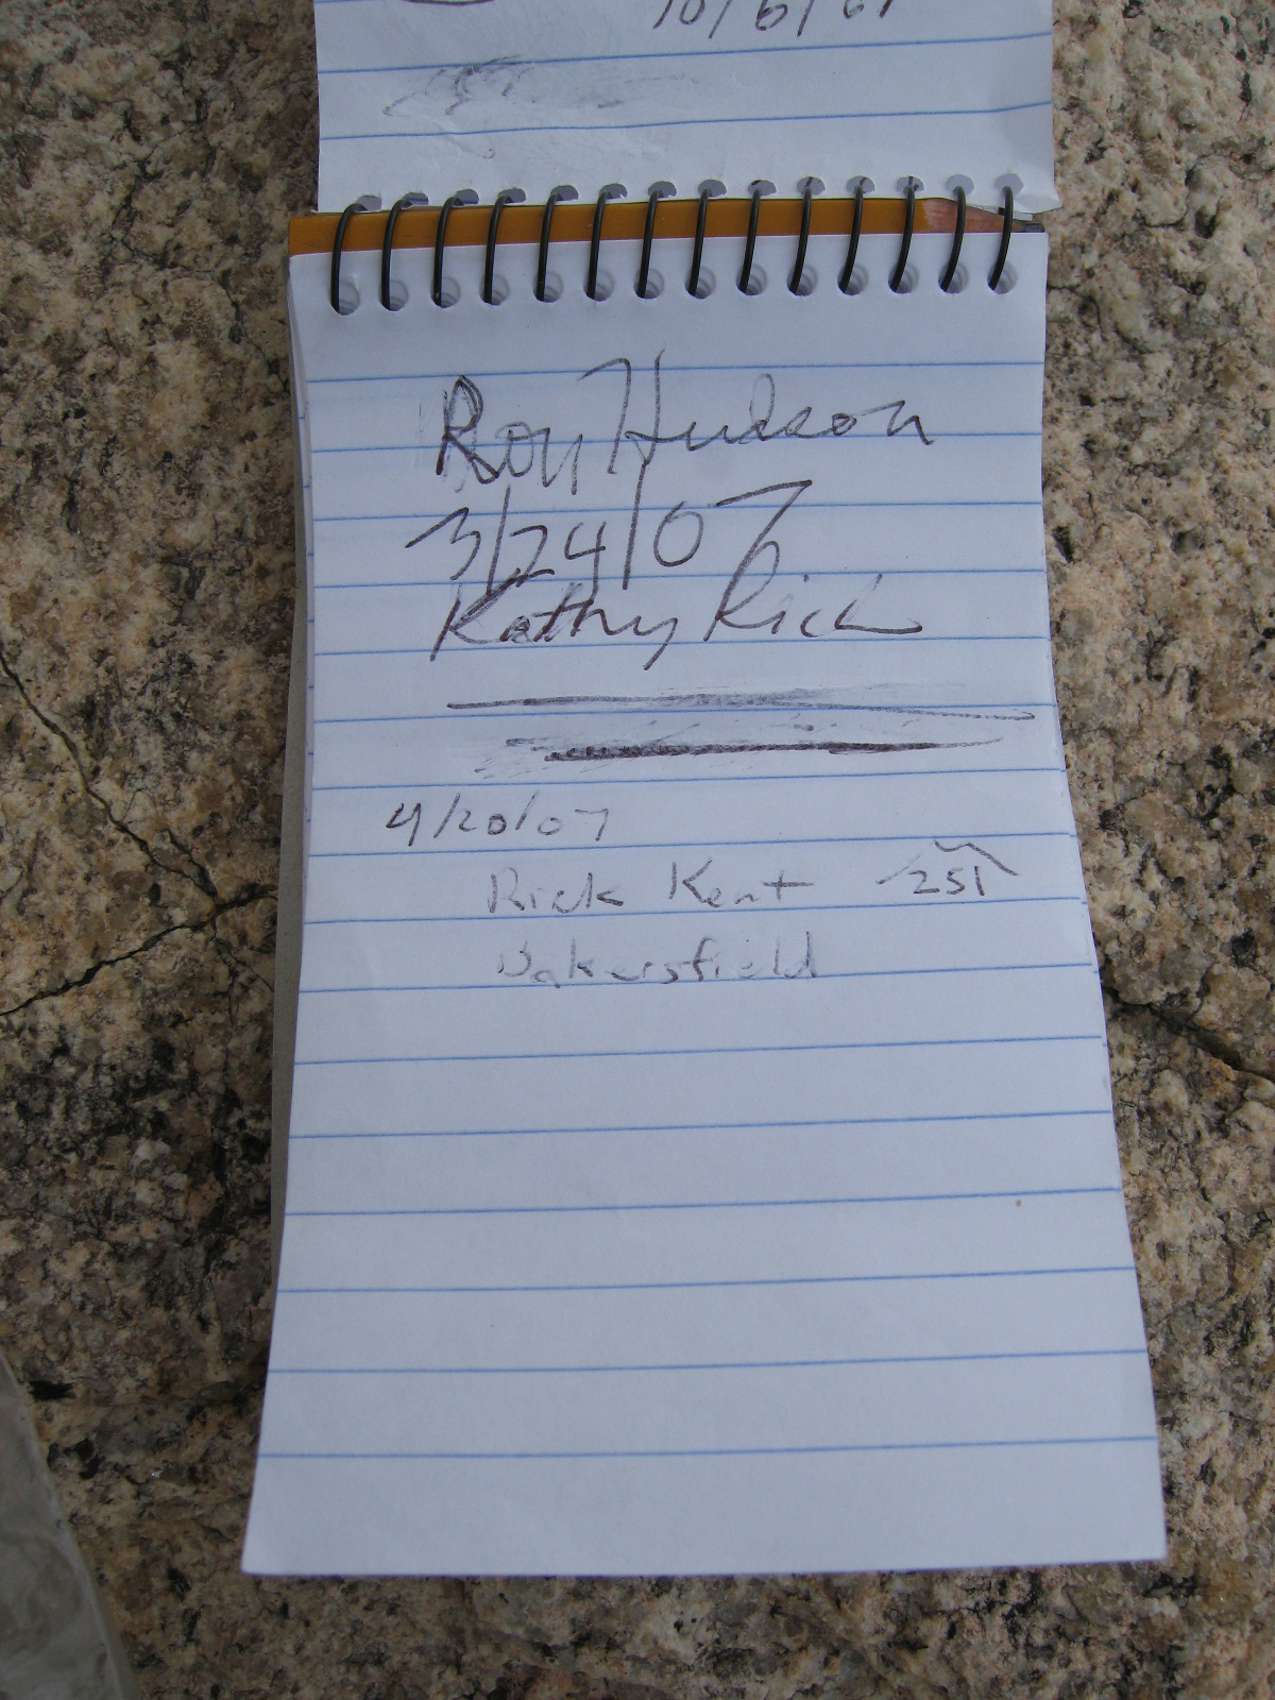 Roy Hudson
3/24/07
Kathy Rich
4/20/07
Rick Kent 251
Bakersfield